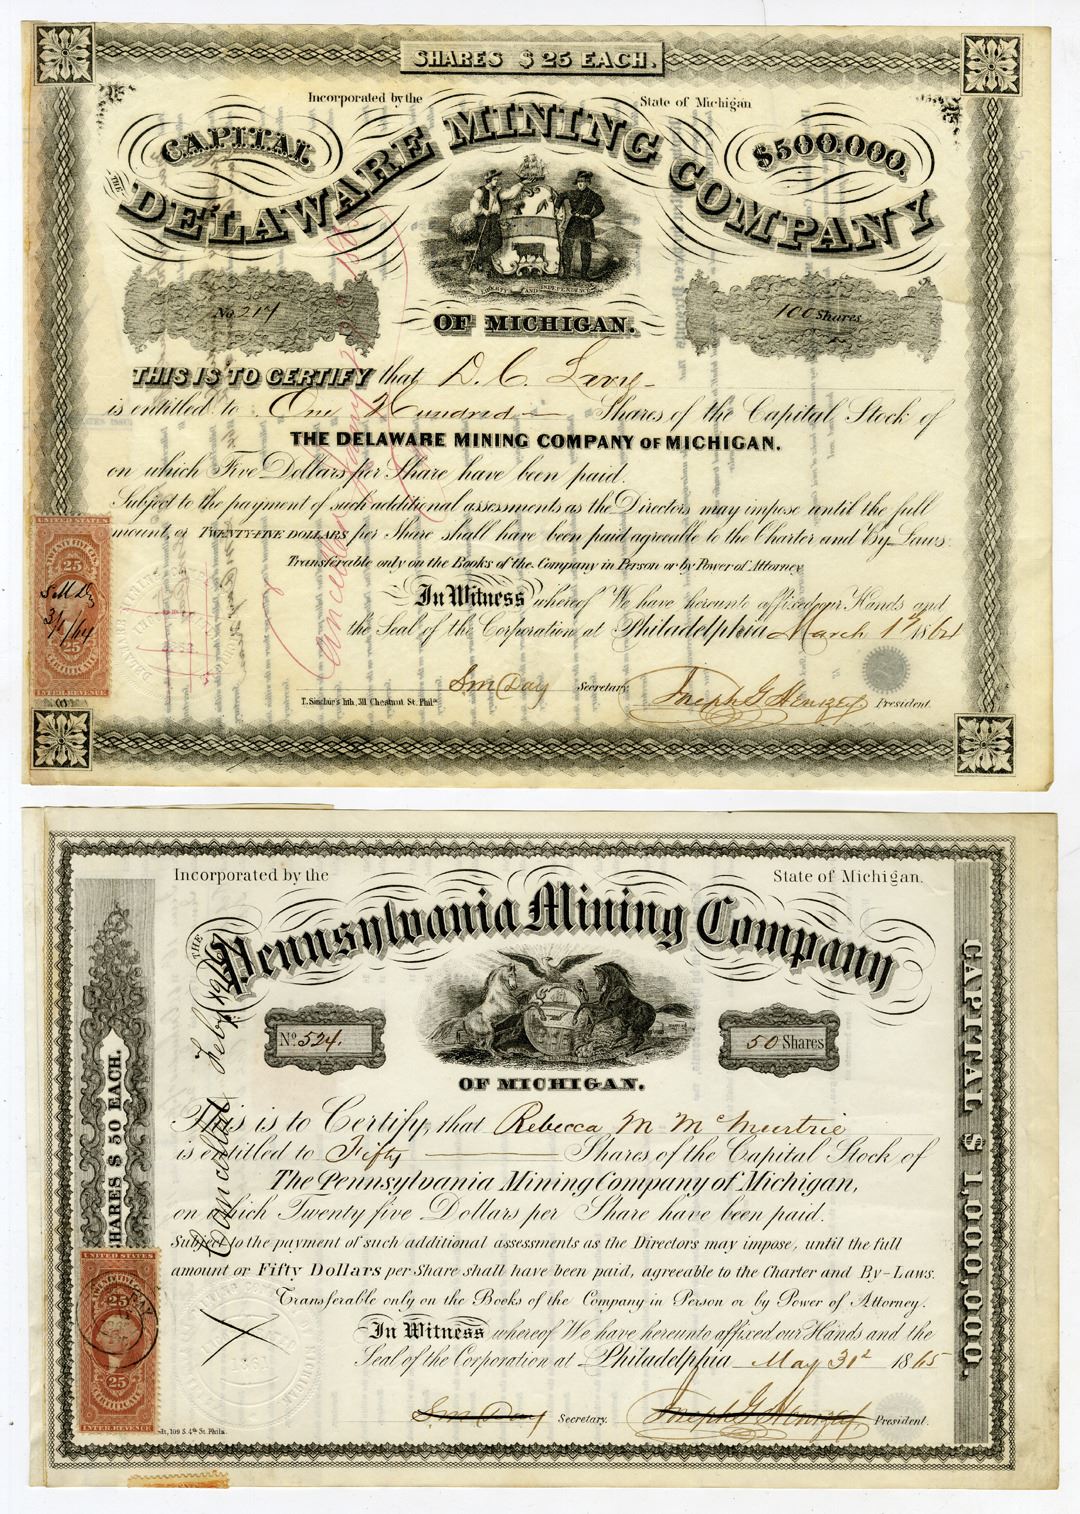 SHARES $ 25 EACH.
Incorporated by the State of Michigan
CAPITAL $500.000.
THE DELAWARE MINING COMPANY
LIBERTY AND INDEPENDENCE
No. 214 100 Shares
OF MICHIGAN.
THIS IS TO CERTIFY that D. C. Levy
is entitled to One Hundred Shares of the Capital Stock of
THE DELAWARE MINING COMPANY OF MICHIGAN.
on which Five Dollars per Share have been paid.
Subject to the payment of such additional assessments as the Directors may impose until the full
amount, or TWENTY-FIVE DOLLARS per Share shall have been paid agreeable to the Charter and By-Laws
Transferable only on the Books of the Company in Person or by Power of Attorney
In Witness whereof We have hereunto affixed our Hands and
the Seal of the Corporation at Philadelphia March 1st 1864
S M Day Secretary. Joseph G Henszey President.
T. Sinclair's lith, 311 Chestnut St. Phila
UNITED STATES
TWENTY FIVE CTS
25
S. M. D
3/1/64
25
CERTIFICATE
INTER. REVENUE
Cancelled
Incorporated by the State of Michigan.
THE Pennsylvania Mining Company
No 524. 50 Shares
OF MICHIGAN.
SHARES $ 50 EACH.
CAPITAL $ 1,000,000.
This is to Certify, that Rebecca M McMurtrie
is entitled to Fifty Shares of the Capital Stock of
The Pennsylvania Mining Company of Michigan,
on which Twenty five Dollars per Share have been paid.
Subject to the payment of such additional assessments as the Directors may impose, until the full
amount or Fifty Dollars per Share shall have been paid, agreeable to the Charter and By-Laws.
Transferable only on the Books of the Company in Person or by Power of Attorney.
In Witness whereof We have hereunto affixed our Hands and the
Seal of the Corporation at Philadelphia May 31st 1865
S M Day Secretary. Joseph G Henszey President.
109 S. 4th St. Phila.
UNITED STATES
25
DAY
25
CERTIFICATE
INTER. REVENUE
1861
Cancelled Feby